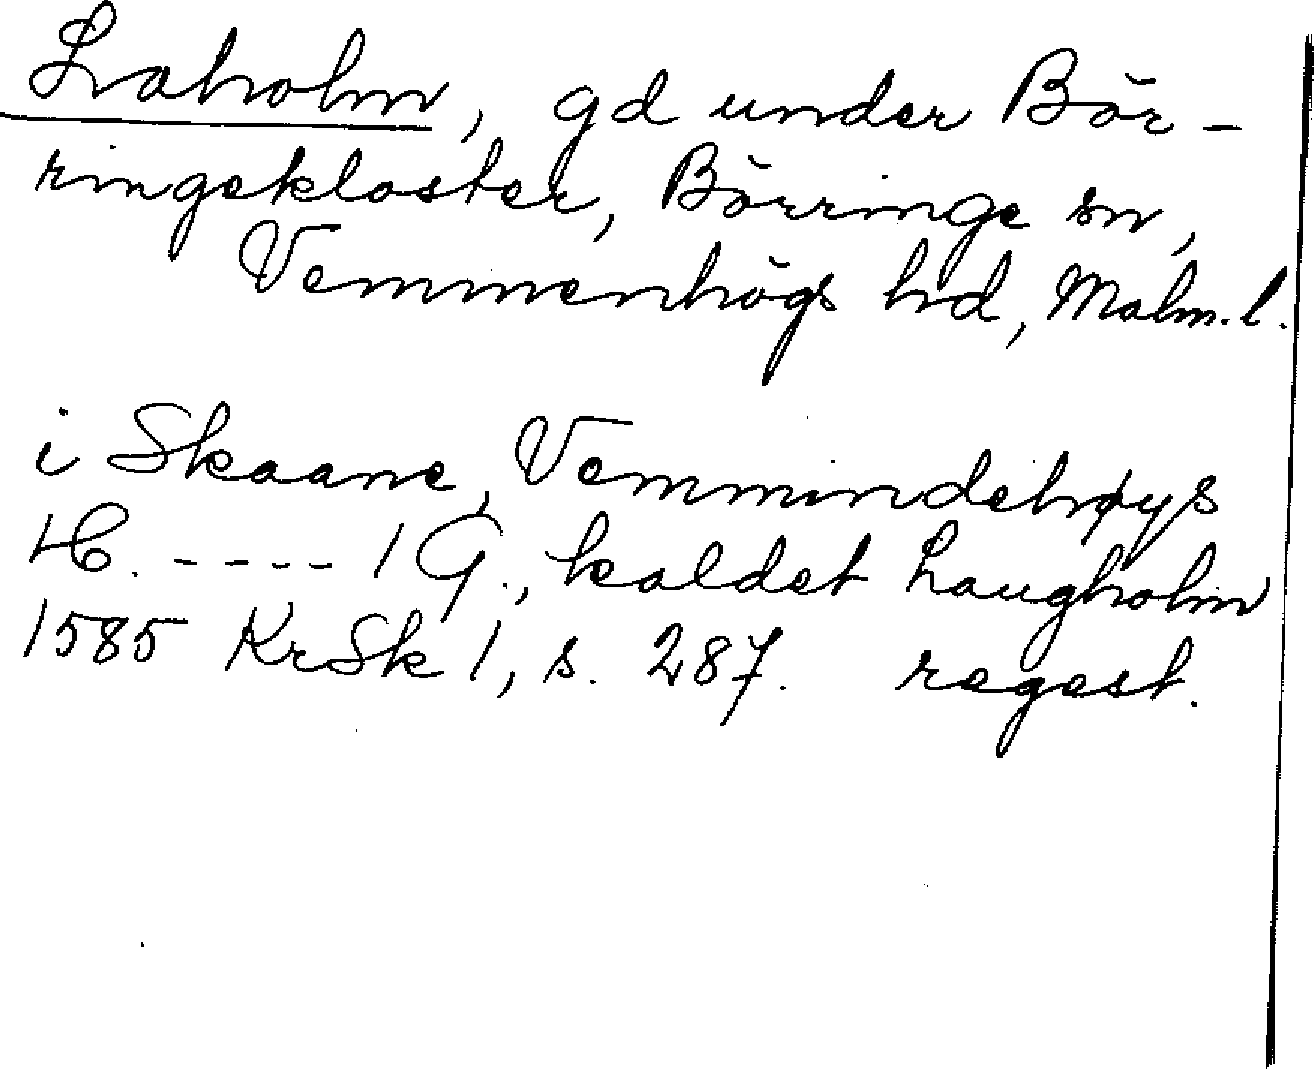 Laholm, gd under Bör-
ringekloster, Börringe sn,
Vemmenhögs hd, Malm.l.
i Skaane, Vemmindehøys
H. ---- 1 G., kaldet Laugholm
1585 KrSk 1, s. 287. regest.